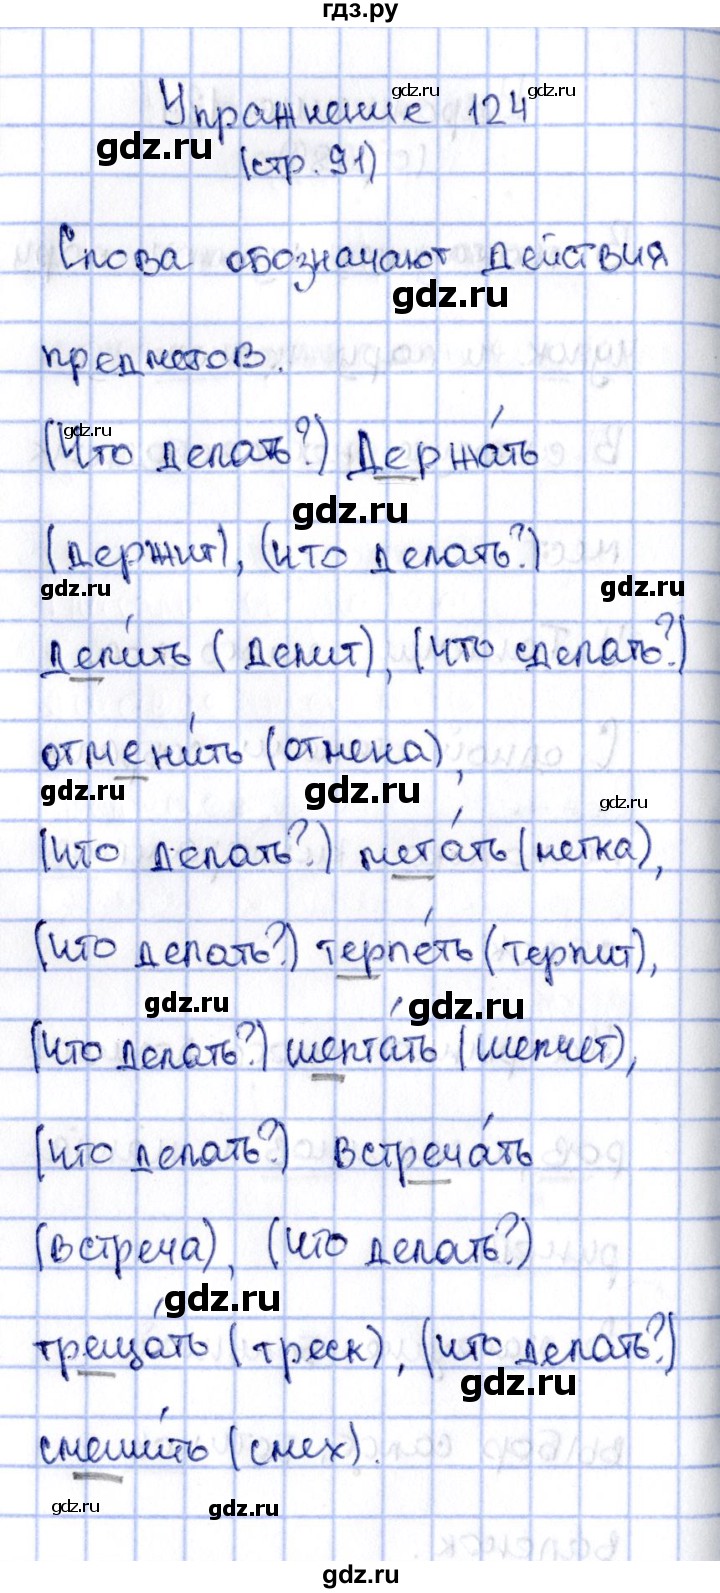 гдз.ру
Упражнение 124
gdz.ru gdz.ru
gdz.ru
(стр. 91)
Слова обозначают действия
gdz.ru
предметов.
gdz.ru
(Что делать?) Держа́ть
gdz.ru
(держит), (что делать?)
gdz.ru gdz.ru
дели́ть (делит), (что сделать?)
отмени́ть (отмена),
gdz.ru gdz.ru gdz.ru
(что делать?) мета́ть (метка),
(что делать?) терпе́ть (терпит),
gdz.ru gdz.ru
(что делать?) шепта́ть (шепчет),
(что делать?) встреча́ть
(встреча), (что делать?)
gdz.ru
треща́ть (треск), (что делать?)
gdz.ru
смеши́ть (смех).
gdz.ru gdz.ru
gdz.ru